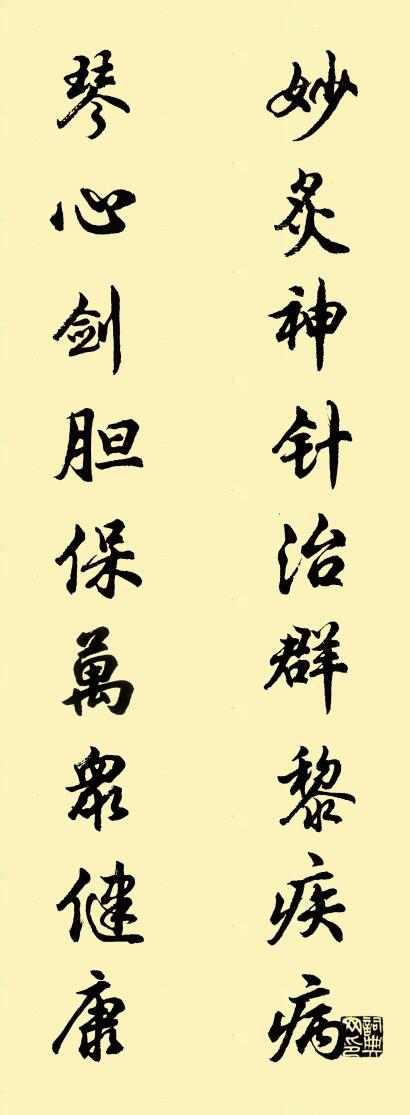 妙炙神针治群黎疾病
琴心剑胆保萬眾健康